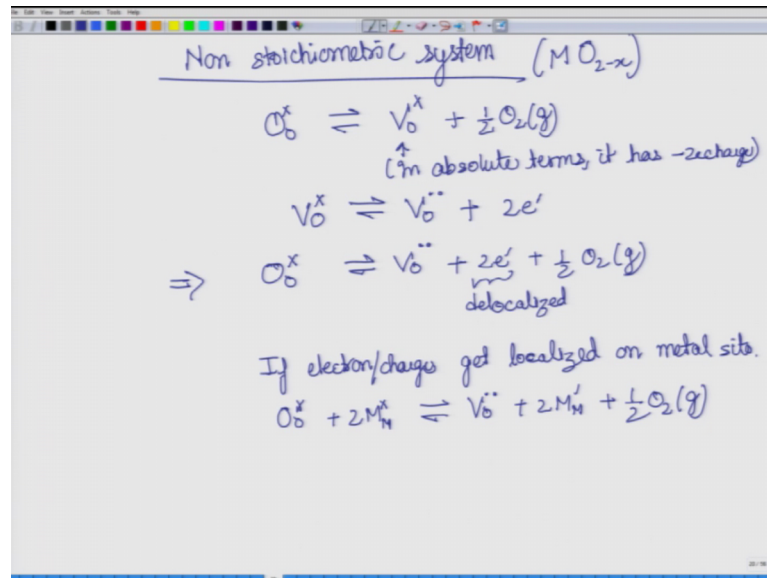 Edit View Insert Actions Tools Help
Non stoichiometric system (MO₂₋ₓ)
Oₒˣ ⇌ Vₒˣ + ½O₂(g)
↑
(in absolute terms, it has -2e charge)
Vₒˣ ⇌ Vₒ˙˙ + 2e′
⇒ Oₒˣ ⇌ Vₒ˙˙ + 2e′ + ½ O₂(g)
delocalized
If electron/charges get localized on metal site.
Oₒˣ + 2M_Mˣ ⇌ Vₒ˙˙ + 2M_M′ + ½O₂(g)